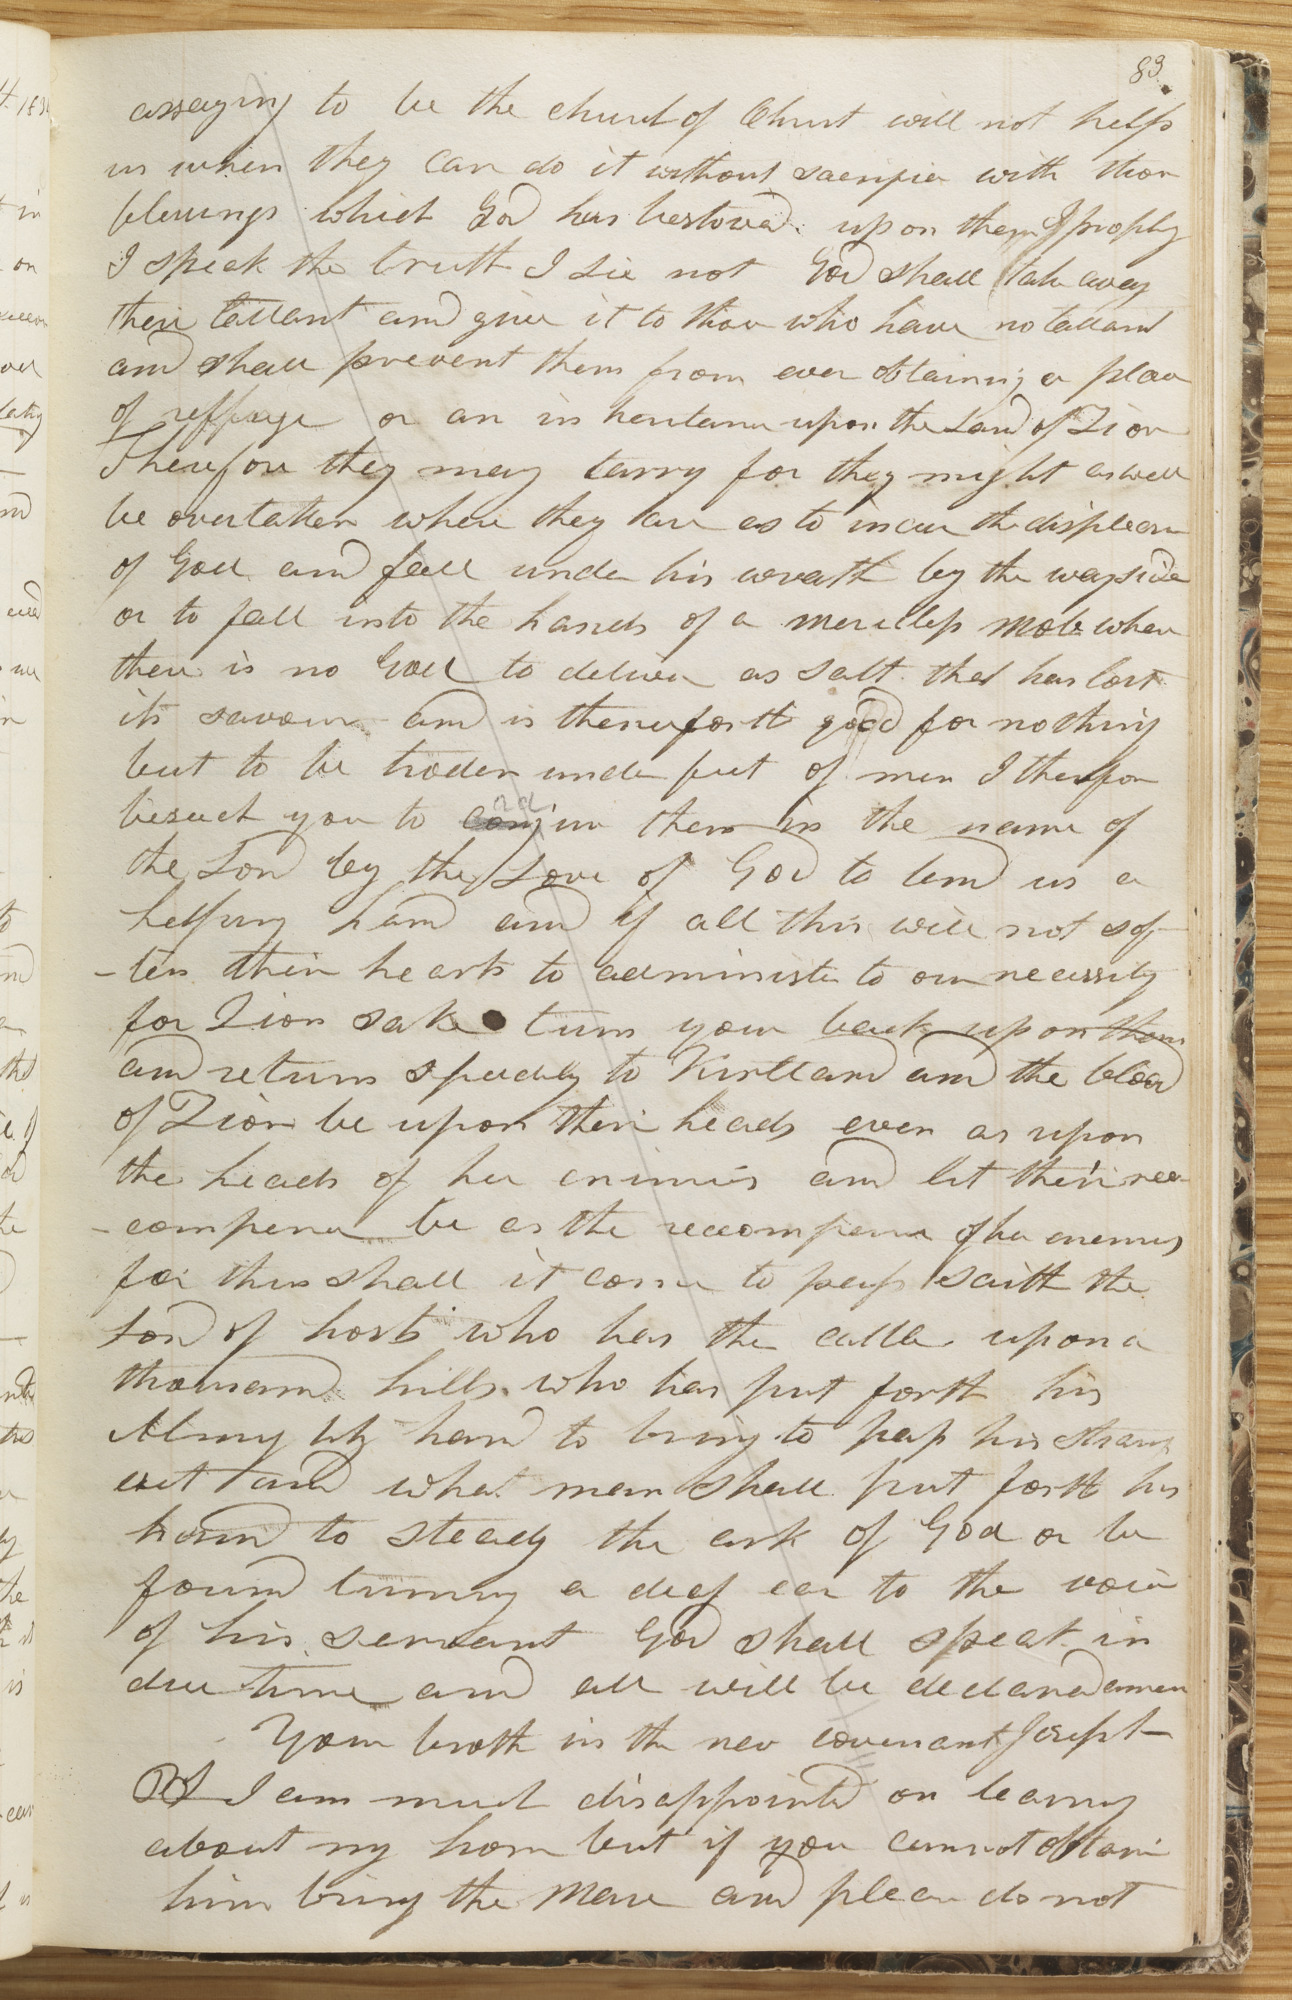 83
assaying to be the church of Christ will not help
us when they can do it without sacrifice with those
blessings which God has bestowed upon them I prophsy
I speak the truth I Lie not God shall take away
their tallant and give it to those who have no tallant
and shall prevent them from ever obtaining a place
of reffuge or an inheritance upon the Land of Zion
Therefore they may tarry for they might as well
be overtaken where they are as to incur the displeasure
of God and fall under his wrath by the wayside
or to fall into the hands of a merciless mob where
there is no God to deliver as salt that has lost
its savour and is thenceforth good for nothing
but to be troden under feet of men I therefore
beseech you to conjure them in the name of
ad
the Lord by the Love of God to lend us a
helping hand and if all this will not sof
-ten their hearts to administer to our necessity
for Zion sake turn your back upon them
and return speedily to Kirtland and the blood
of Zion be upon their heads even as upon
the heads of her enimies and let their rec
-compence be as the reccompence of her enemies
for thus shall it come to pass saith the
Lord of hosts who has the cattle upon a
thousand hills who has put forth his
Almighty hand to bring to pass his strange
act and what man shall put forth his
hand to steady the ark of God or be
found turning a deef ear to the voice
of his servant God shall speak in
due time and all will be declared amen
Your broth in the new covenant Joseph
PS I am much disappointed on learng
about my horse but if you cannot obtain
him bring the Mare and please do not